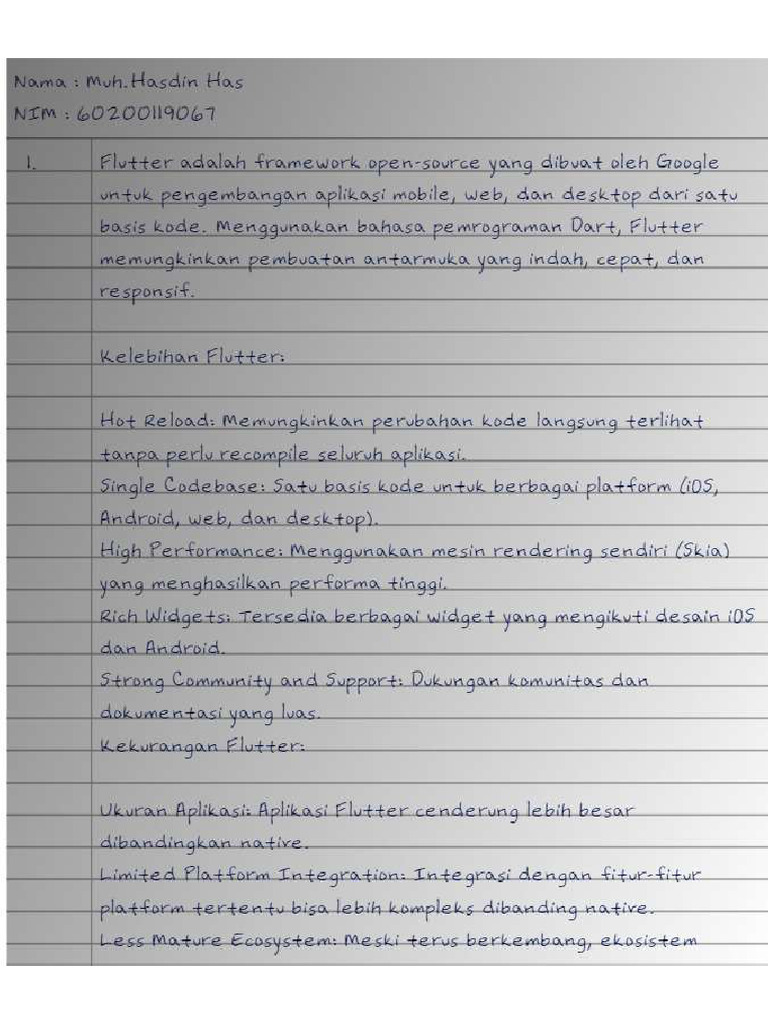 Nama : Muh.Hasdin Has
NIM : 60200119067
1. Flutter adalah framework open-source yang dibuat oleh Google
untuk pengembangan aplikasi mobile, web, dan desktop dari satu
basis kode. Menggunakan bahasa pemrograman Dart, Flutter
memungkinkan pembuatan antarmuka yang indah, cepat, dan
responsif.
Kelebihan Flutter:
Hot Reload: Memungkinkan perubahan kode langsung terlihat
tanpa perlu recompile seluruh aplikasi.
Single Codebase: Satu basis kode untuk berbagai platform (iOS,
Android, web, dan desktop).
High Performance: Menggunakan mesin rendering sendiri (Skia)
yang menghasilkan performa tinggi.
Rich Widgets: Tersedia berbagai widget yang mengikuti desain iOS
dan Android.
Strong Community and Support: Dukungan komunitas dan
dokumentasi yang luas.
Kekurangan Flutter:
Ukuran Aplikasi: Aplikasi Flutter cenderung lebih besar
dibandingkan native.
Limited Platform Integration: Integrasi dengan fitur-fitur
platform tertentu bisa lebih kompleks dibanding native.
Less Mature Ecosystem: Meski terus berkembang, ekosistem